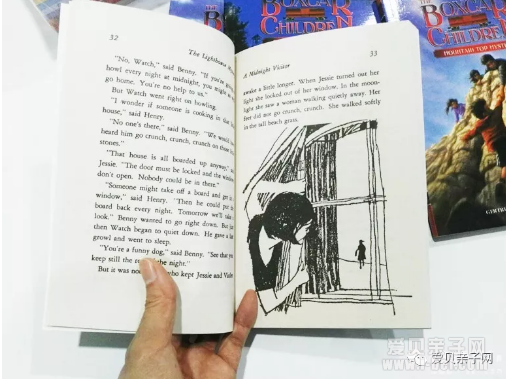 THE BOXCAR CHILDREN
THE BOXCAR
CHILDREN
MOUNTAIN TOP MYSTERY
32
The Lighthouse
"No, Watch," said Benny. "If you're going
howl every night at midnight, you might as
go home. You're no help to us."
But Watch went right on howling.
"I wonder if someone is cooking in that
house," said Henry.
"No one's there," said Benny. "We would
heard him go crunch, crunch, crunch on those
stones."
"That house is all boarded up anyway,"
Jessie. "The door must be locked and the windows
don't open. Nobody could be in there."
"Someone might take off a board and get in
window," said Henry. "Then he could put the
board back every night. Tomorrow we'll take
look." Benny wanted to go right down. But just
then Watch began to quiet down. He gave a last
growl and went to sleep.
"You're a funny dog," said Benny. "See that you
keep still the rest of the night."
But it was who kept Jessie and Violet
33
A Midnight Visitor
awake a little longer. When Jessie turned out her
light she looked out of her window. In the moon-
light she saw a woman walking quietly away. Her
feet did not go crunch, crunch. She walked softly
in the tall beach grass.
爱贝亲子网
爱贝亲子网